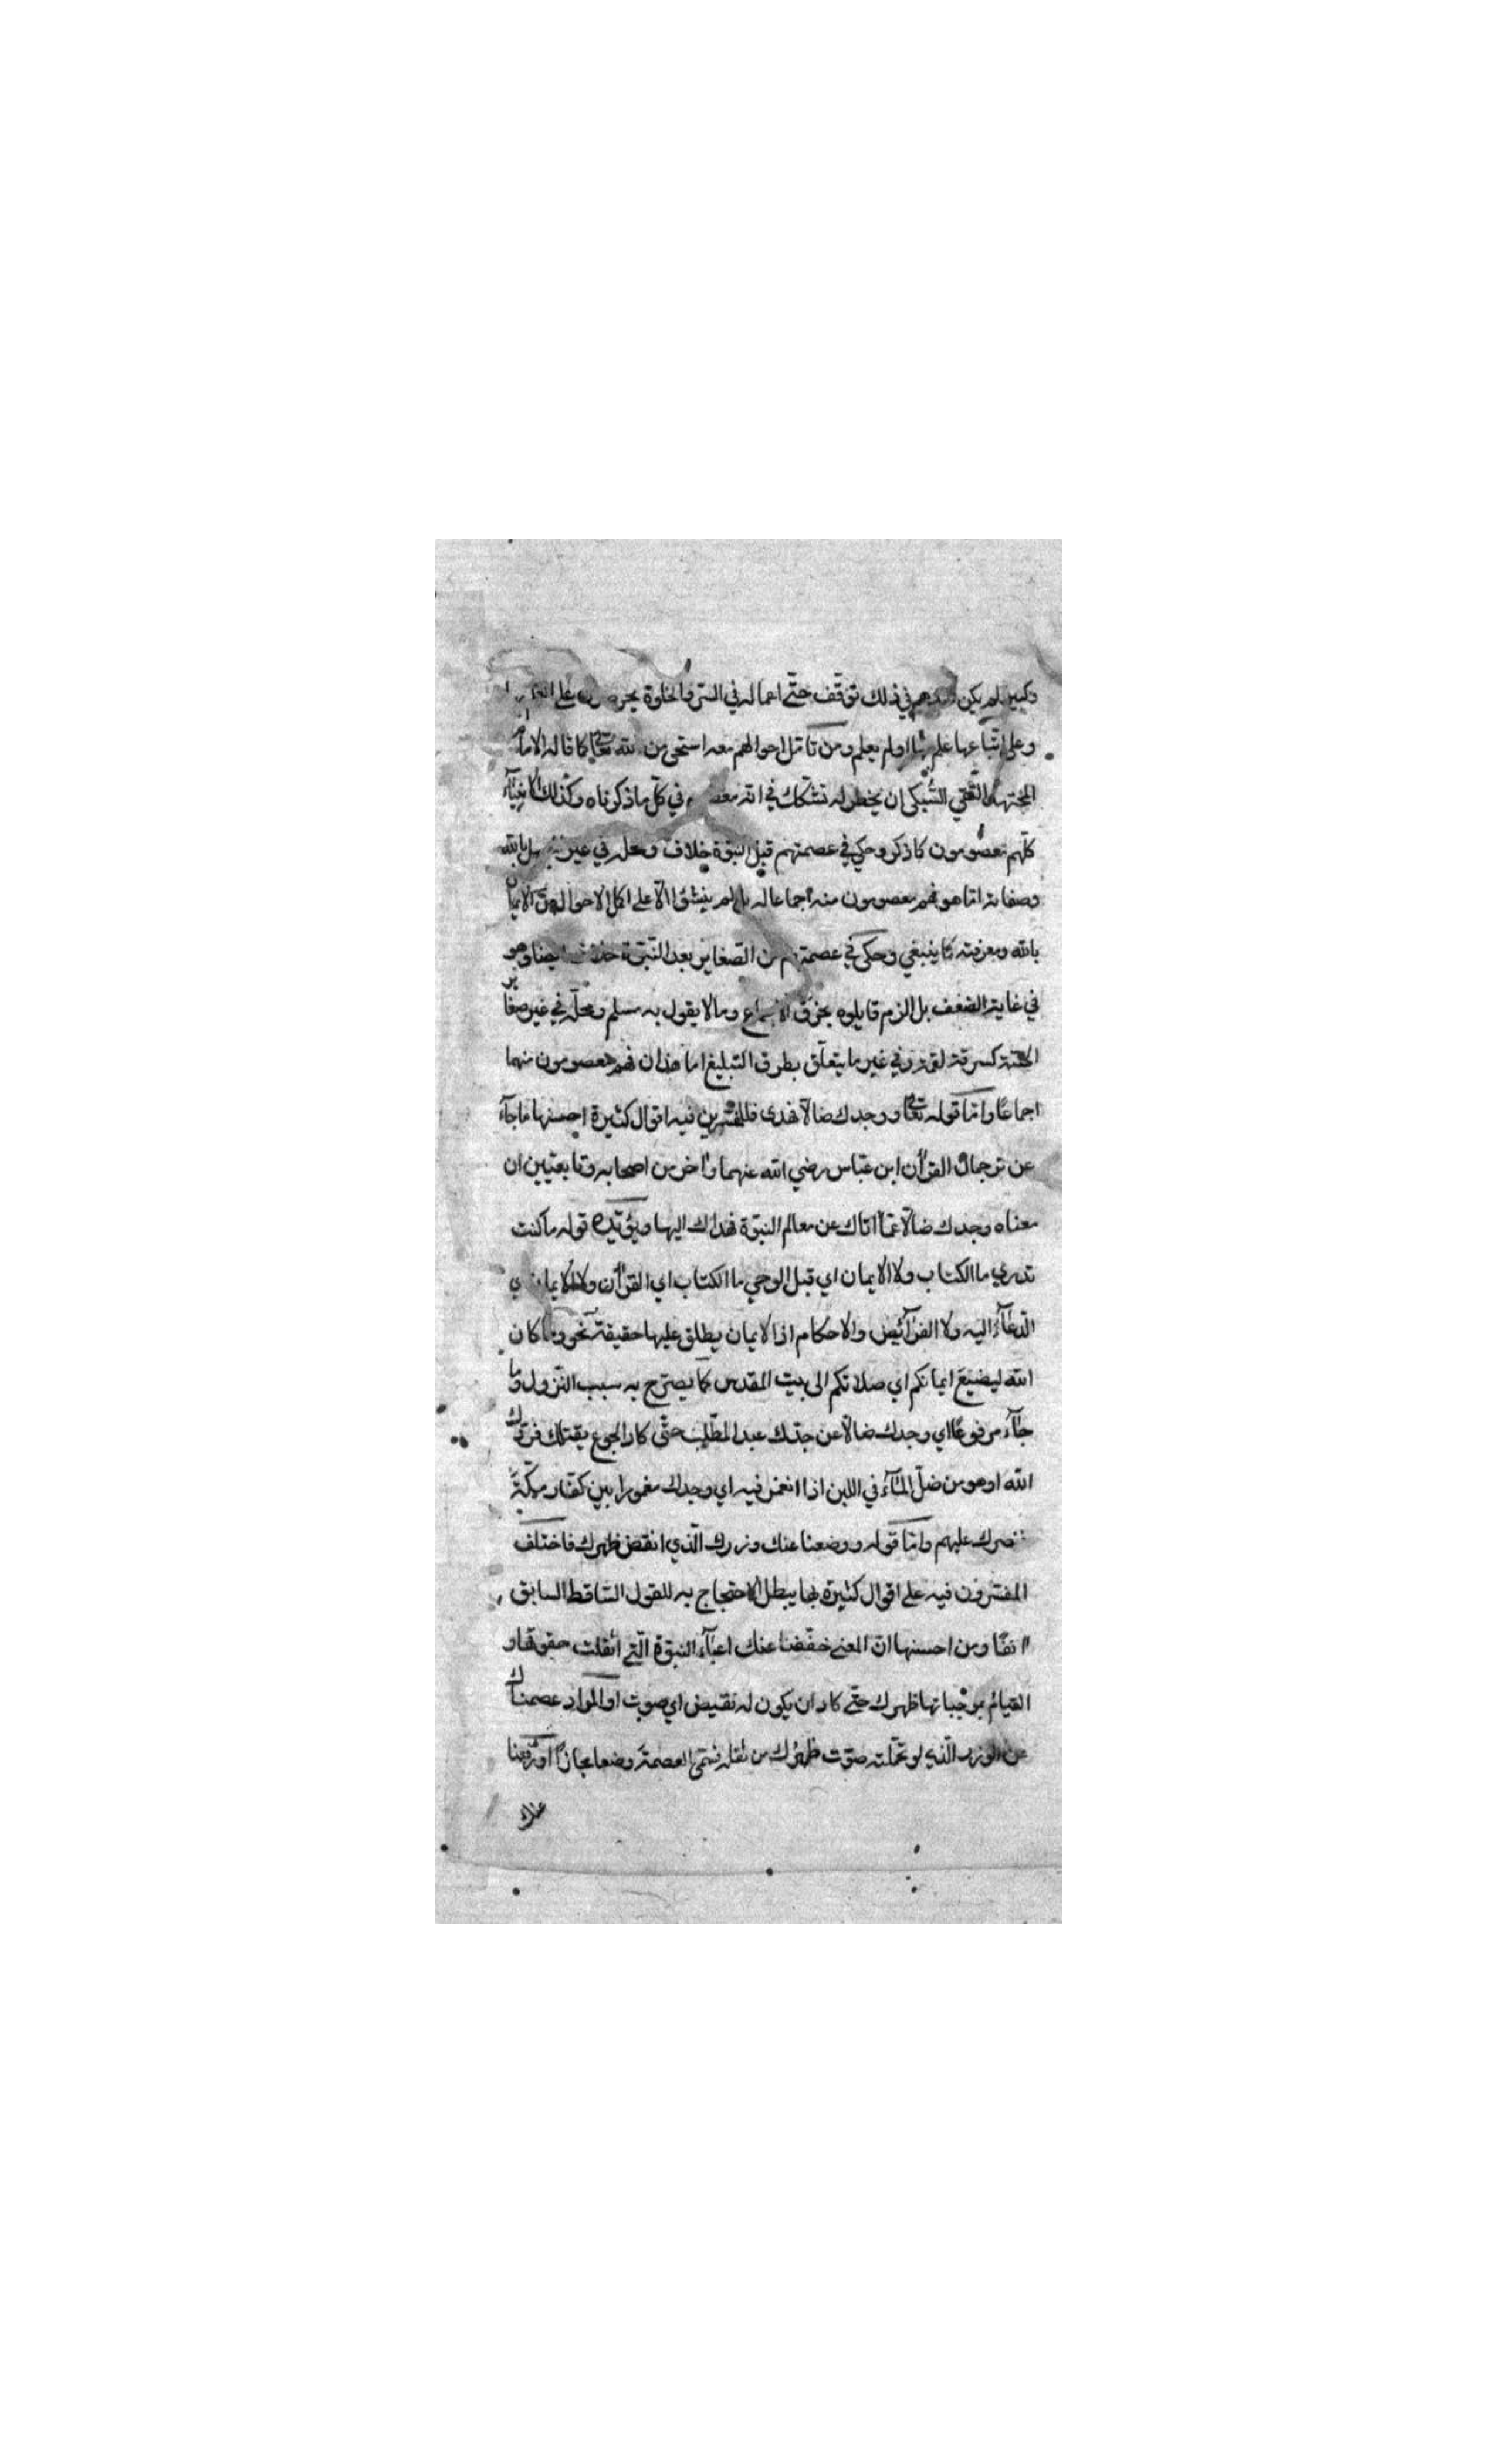 وكبير لم يكن عندهم في ذلك توقف حتّى اعماله في السّر والخلوة يحرصون على
وعلى اتّباعها علم بها او لم يعلم ومن تامّل احوالهم معه استحى من الله تعالى كما قاله الامام
المجتهد التّقي السّبكي ان يخطر له تشكك في انّه معصوم في كلّ ما ذكرناه وكذلك الانبيآء
كلّهم معصومون كما ذكر وحكي في عصمتهم قبل النبوّة خلاف ومحله في غير بالله
وصفاته امّا هو فهم معصومون منه اجماعا له بل لم ينشؤا الّا على اكمل الاحوال من الايمان
بالله ومعرفته كما ينبغي وحكى في عصمتهم من الصّغاير بعد النّبوّة خلاف ايضا وهو
في غاية الضعف بل الزم قايلوه بخرق الاجماع وما لا يقول به مسلم ومحلّه في غير صغاير
الخسّة كسرقة لقمة وفي غير ما يتعلّق بطرق التبليغ اما هذان فهم معصومون منهما
اجماعًا وامّا قوله تعالى ووجدك ضالّا فهدى فللمفسّرين فيه اقوال كثيرة احسنها ما جآء
عن ترجمان القرآن ابن عبّاس رضي الله عنهما وآخر من اصحابه وتابعيّين ان
معناه وجدك ضالّا عمّا اتاك عن معالم النبوّة فهداك اليها ويؤيّده قوله ما كنت
تدري ما الكتاب ولا الايمان اي قبل الوحي ما الكتاب اي القرآن ولا الايمان اي
الدّعآء اليه ولا الفرآئض والاحكام اذ الايمان يطلق عليها حقيقة نحو وما كان
الله ليضيع ايمانكم اي صلاتكم الى بيت المقدس كما يصرّح به سبب النّزول وما
جآء مرفوعًا اي وجدك ضالّا عن جدّك عبد المطّلب حتّى كاد الجوع يقتلك فردّك
الله او هو من ضلّ المآء في اللبن اذا انغمر فيه اي وجدك مغمورا بين كفّار مكّة
فنصرك عليهم وامّا قوله ووضعنا عنك وزرك الّذي انقض ظهرك فاختلف
المفسّرون فيه على اقوال كثيرة بها يبطل الاحتجاج به للقول السّاقط السابق
آنفًا ومن احسنها انّ المعنى خفّفنا عنك اعبآء النبوّة الّتي اثقلت حقوقها و
القيام بموجباتها ظهرك حتّى كاد ان يكون له نقيض اي صوت او المراد عصمناك
عن الوزر الّذي لو تحمّلته صوّت ظهرك من ثقله فسمّى العصمة وضعا مجازًا او رفعنا
عنك